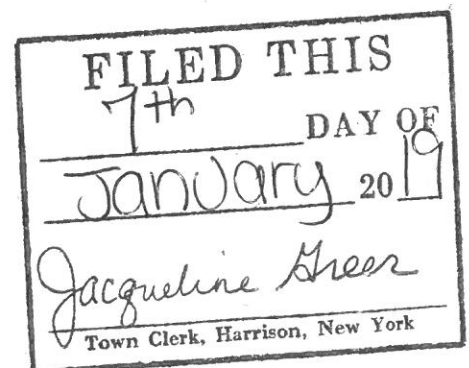 FILED THIS
7th DAY OF
January 2019
Jacqueline Greer
Town Clerk, Harrison, New York